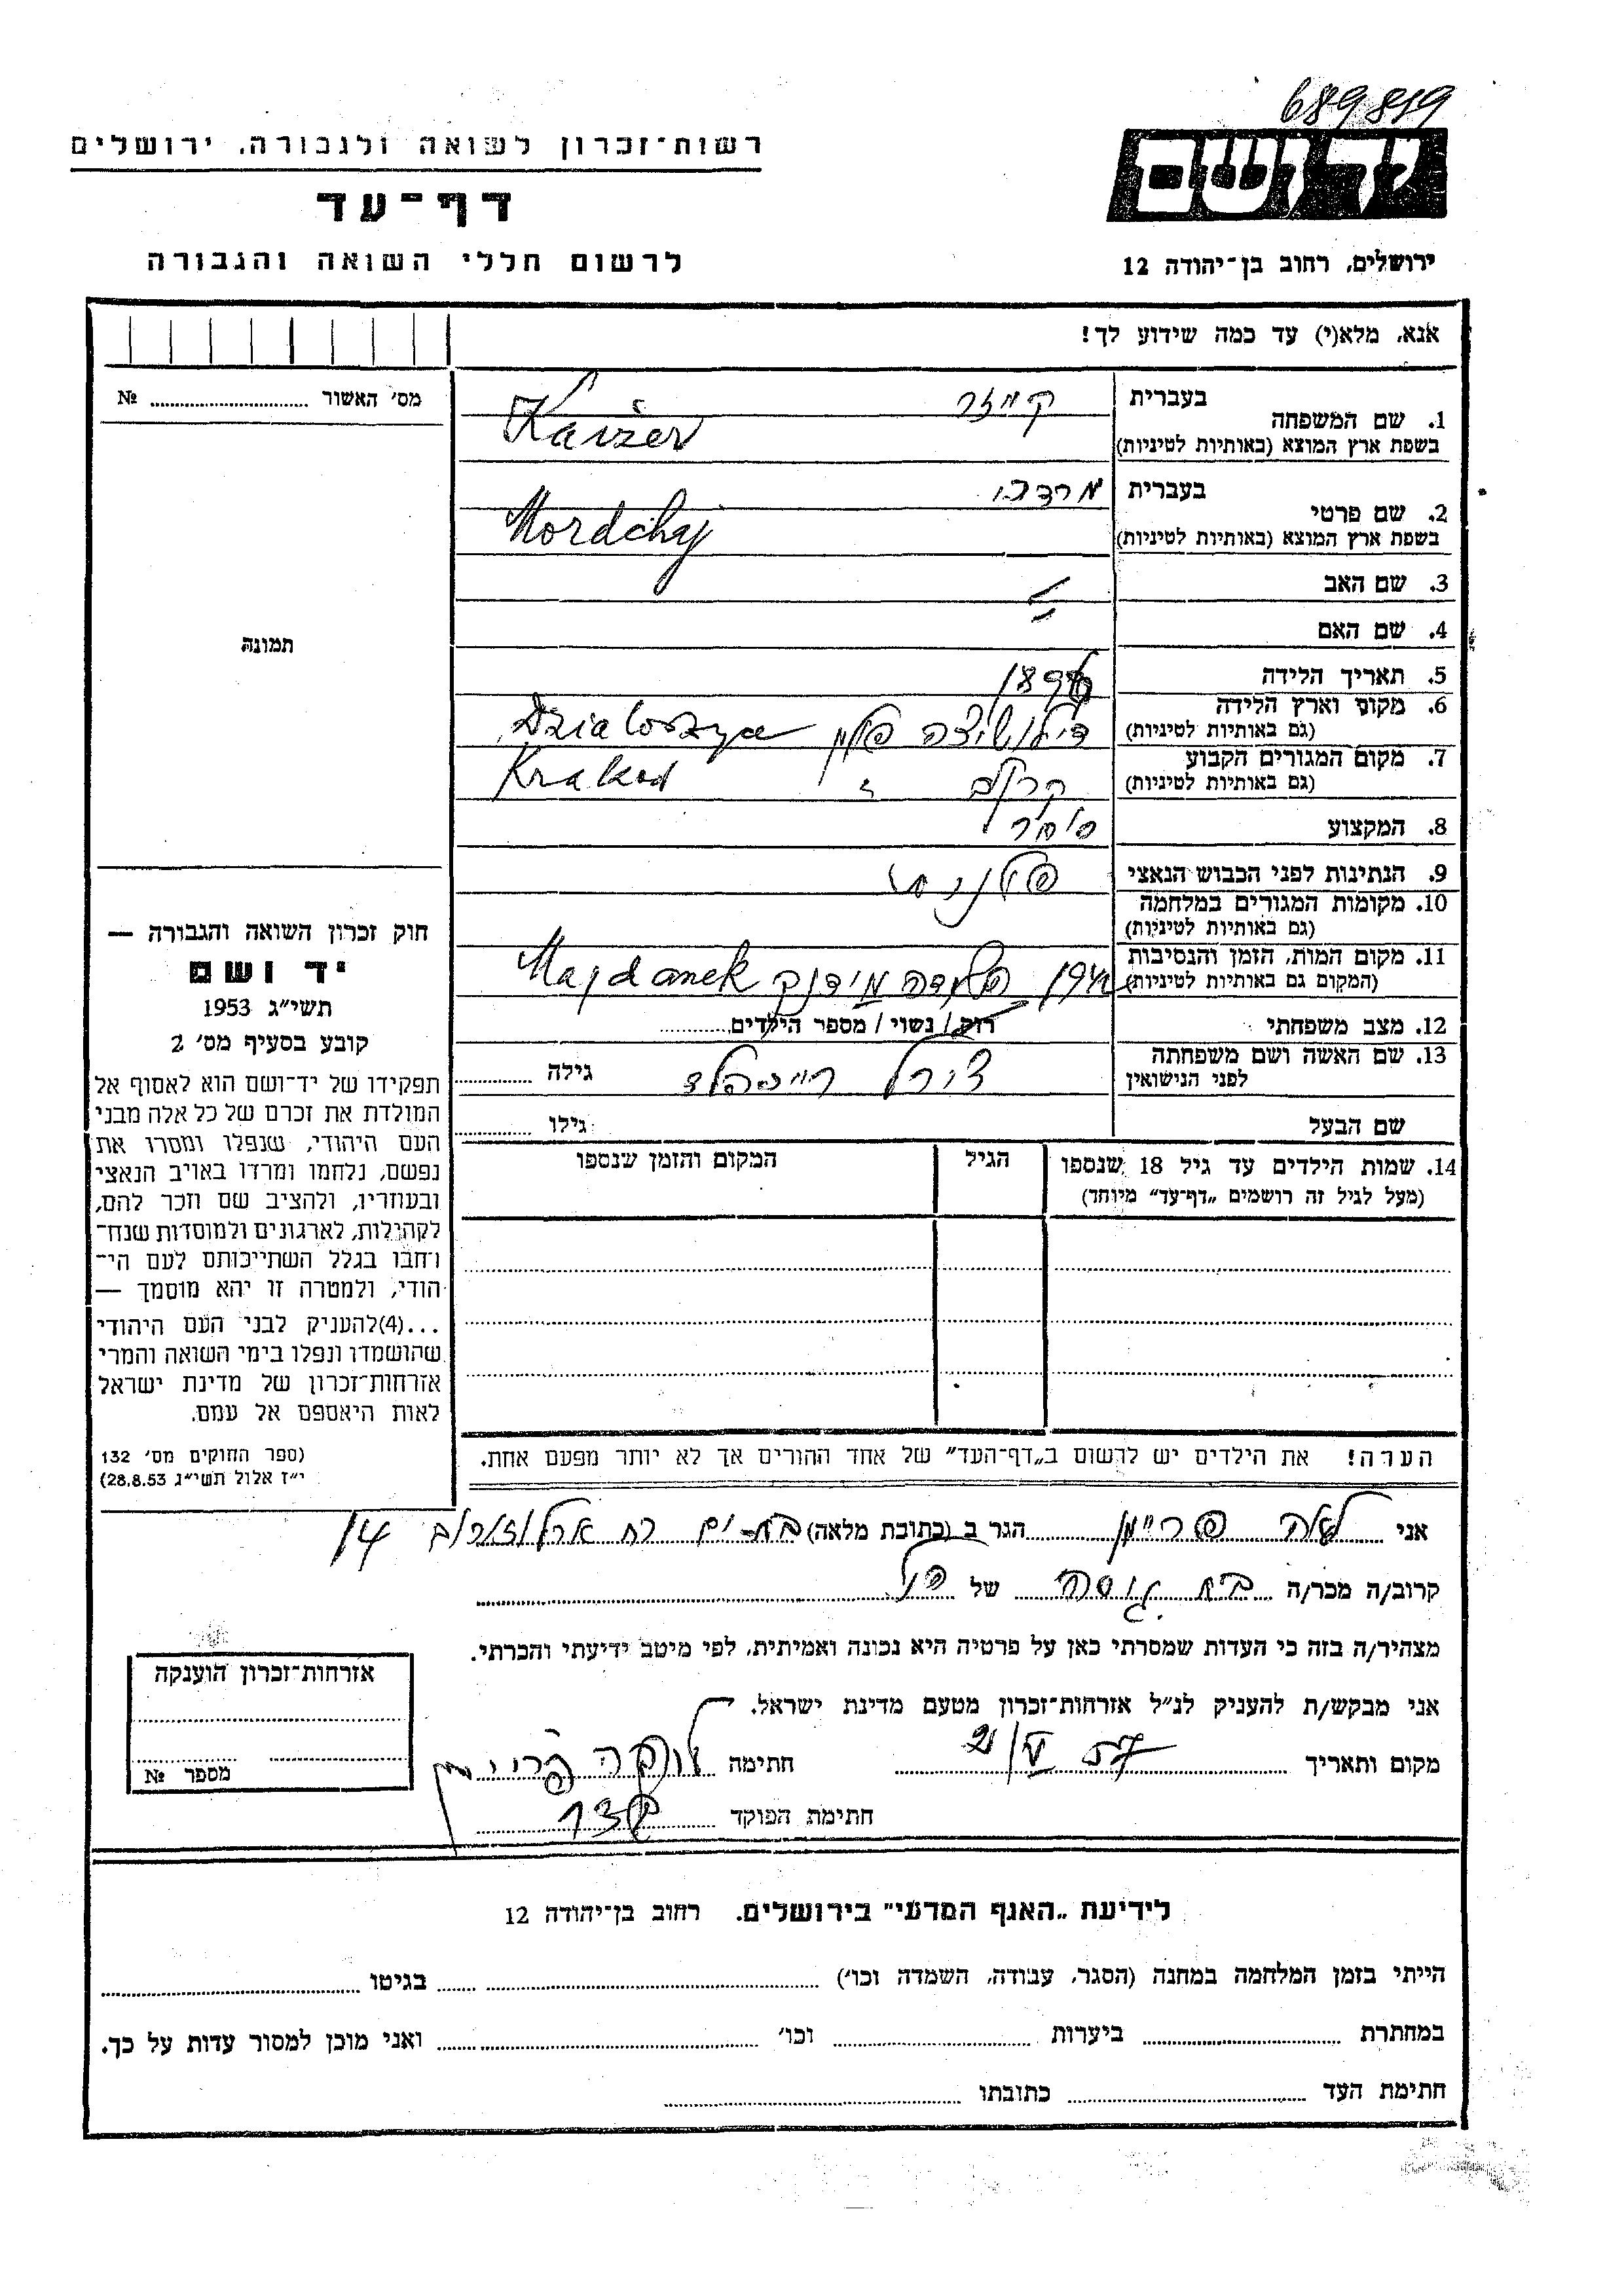 689819
רשות־זכרון לשואה ולגבורה, ירושלים
דף־עד
לרשום חללי השואה והגבורה
יד ושם
ירושלים, רחוב בן־יהודה 12
אנא, מלא(י) עד כמה שידוע לך!
מס׳ האשור № 
1. שם המשפחה
בעברית קייזר
בשפת ארץ המוצא (באותיות לטיניות) Kaizer
2. שם פרטי
בעברית מרדכי
בשפת ארץ המוצא (באותיות לטיניות) Mordchaj
3. שם האב
4. שם האם
תמונה
5. תאריך הלידה
6. מקום וארץ הלידה
(גם באותיות לטיניות) פולין
7. מקום המגורים הקבוע
(גם באותיות לטיניות) קרקוב
8. המקצוע סוחר
9. הנתינות לפני הכבוש הנאצי פולנית
10. מקומות המגורים במלחמה
(גם באותיות לטיניות)
11. מקום המות, הזמן והנסיבות
(המקום גם באותיות לטיניות) מידנק Majdanek
12. מצב משפחתי רוק / נשוי / מספר הילדים
13. שם האשה ושם משפחתה
לפני הנישואין צירל גילה
שם הבעל גילו
14. שמות הילדים עד גיל 18 שנספו
(מעל לגיל זה רושמים „דף־עד״ מיוחד)
הגיל
המקום והזמן שנספו
הערה! את הילדים יש לרשום ב„דף־העד״ של אחד ההורים אך לא יותר מפעם אחת.
חוק זכרון השואה והגבורה —
יד ושם
תשי״ג 1953
קובע בסעיף מס׳ 2
תפקידו של יד־ושם הוא לאסוף אל
המולדת את זכרם של כל אלה מבני
העם היהודי, שנפלו ומסרו את
נפשם, נלחמו ומרדו באויב הנאצי
ובעוזריו, ולהציב שם וזכר להם,
לקהילות, לארגונים ולמוסדות שנח־
רחבו בגלל השתייכותם לעם הי־
הודי, ולמטרה זו יהא מוסמך —
...(4)להעניק לבני העם היהודי
שהושמדו ונפלו בימי השואה והמרי
אזרחות־זכרון של מדינת ישראל
לאות היאספם אל עמם.
(ספר החוקים מס׳ 132
י״ז אלול תשי״ג 28.8.53)
אני לאה פריימן הגר ב (כתובת מלאה) בת־ים רח ארלוזורוב 14
קרוב/ה מכר/ה בת של
מצהיר/ה בזה כי העדות שמסרתי כאן על פרטיה היא נכונה ואמיתית, לפי מיטב ידיעתי והכרתי.
אני מבקש/ת להעניק לנ״ל אזרחות־זכרון מטעם מדינת ישראל.
מקום ותאריך חתימה
חתימת הפוקד
אזרחות־זכרון הוענקה
מספר №
לידיעת „האגף המדעי״ בירושלים. רחוב בן־יהודה 12
הייתי בזמן המלחמה במחנה (הסגר, עבודה, השמדה וכו׳) בגיטו
במחתרת ביערות וכו׳ ואני מוכן למסור עדות על כך.
חתימת העד כתובתו